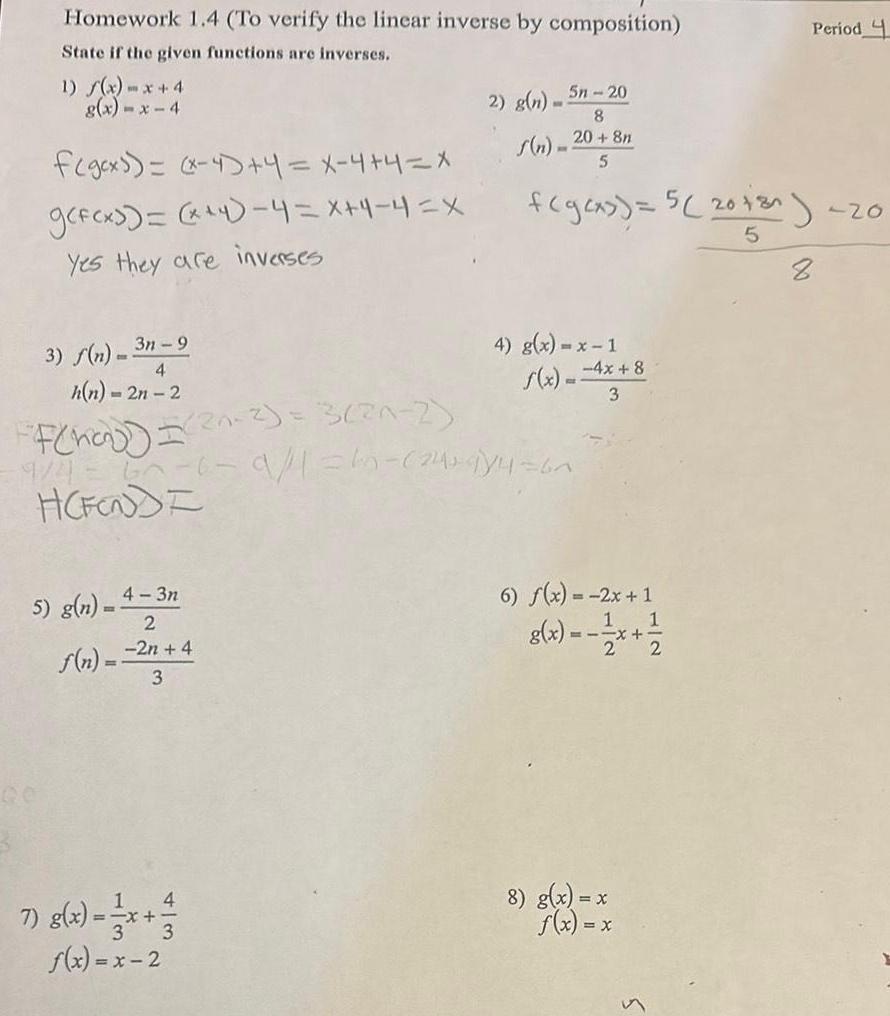 Homework 1.4 (To verify the linear inverse by composition)
Period 4
State if the given functions are inverses.
1) f(x) = x + 4
g(x) = x − 4
f(g(x)) = (x-4)+4 = x-4+4 = x
g(f(x)) = (x+4)-4 = x+4-4 = x
Yes they are inverses
2) g(n) = (5n − 20)/8
f(n) = (20 + 8n)/5
f(g(x)) = (5((20+8n)/5) -20)/8
3) f(n) = (3n − 9)/4
h(n) = 2n − 2
F(h(n)) = (2n-2) = 3(2n-2)
H(F(n)) =
4) g(x) = x − 1
f(x) = (−4x + 8)/3
5) g(n) = (4 − 3n)/2
f(n) = (−2n + 4)/3
6) f(x) = −2x + 1
g(x) = −1/2 x + 1/2
7) g(x) = 1/3 x + 4/3
f(x) = x − 2
8) g(x) = x
f(x) = x